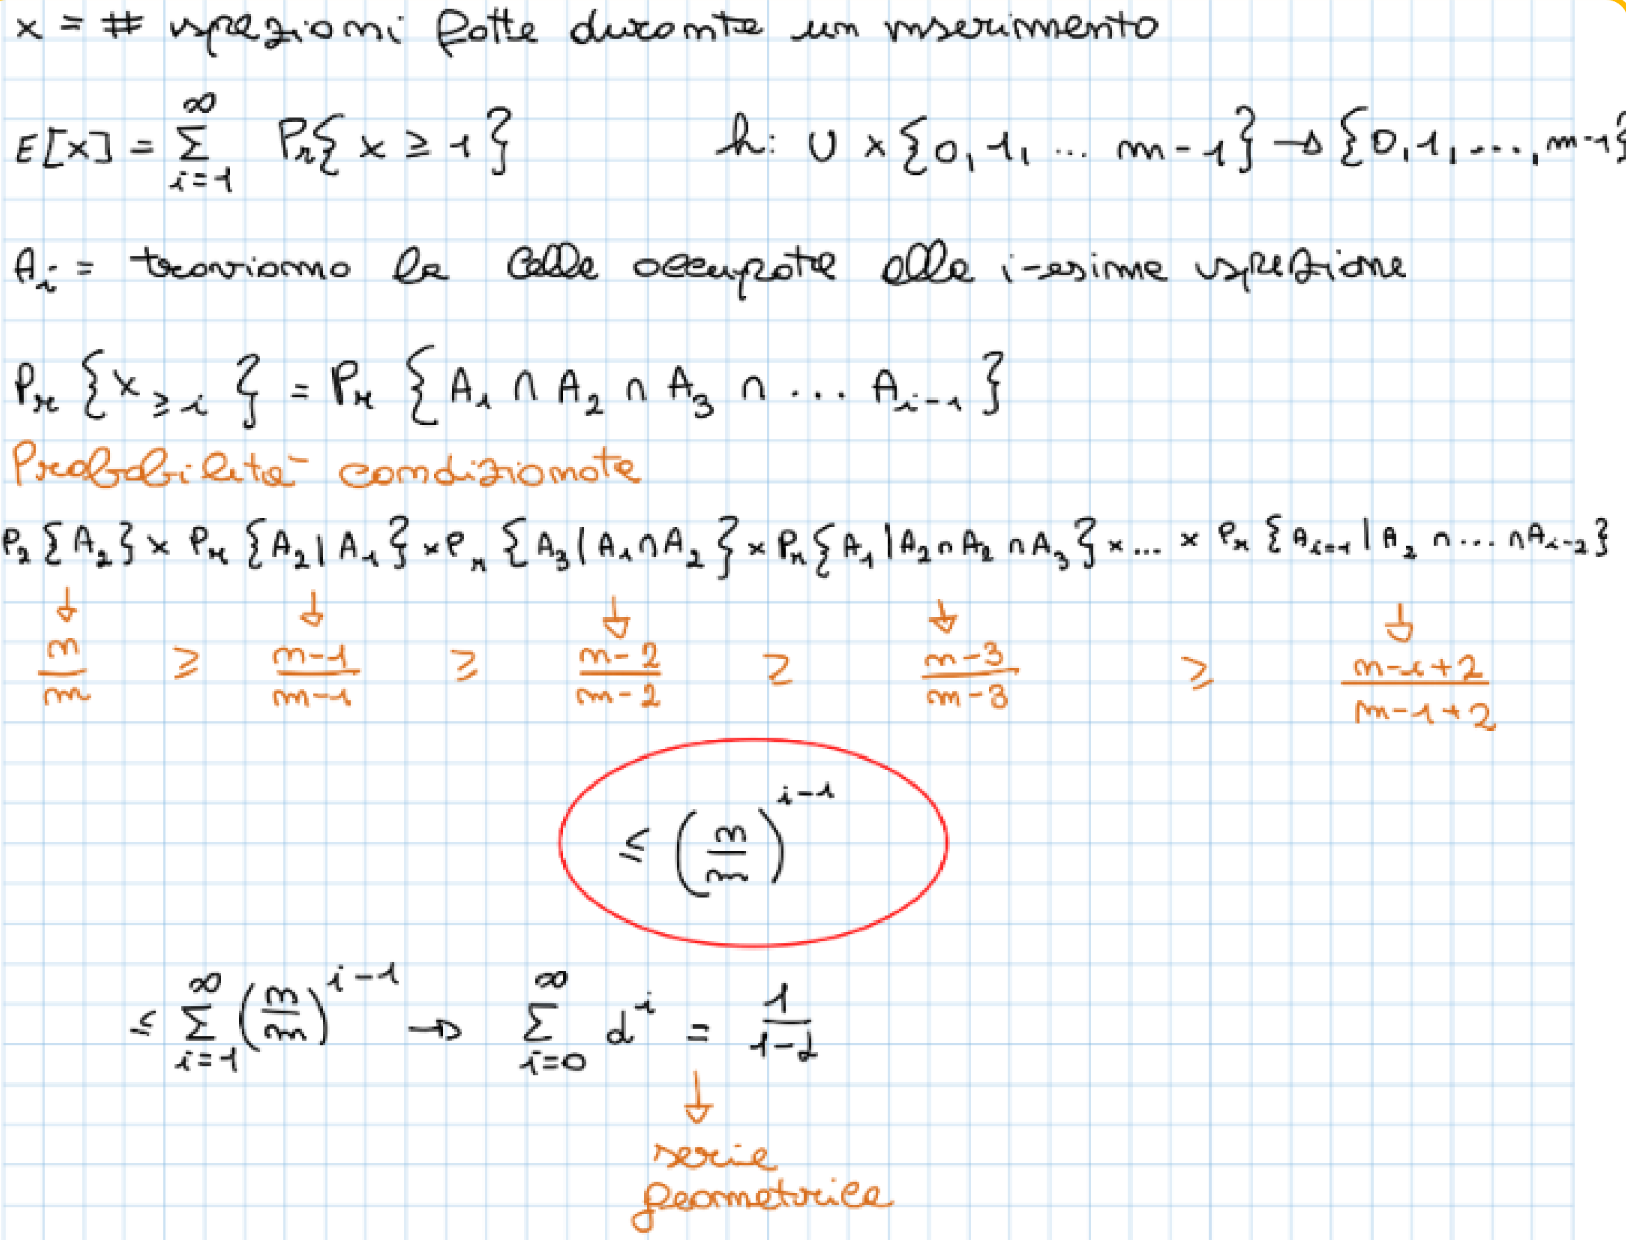 x = # ispezioni fatte durante un inserimento
E[x] = ∑_{i=1}^{∞} Pr{x ≥ 1} h: U × {0,1, ... m-1} → {0,1,...,m-1}
A_i = troviamo la cella occupata alla i-esima ispezione
Pr{x ≥ i} = Pr{A_1 ∩ A_2 ∩ A_3 ∩ ... A_{i-1}}
Probabilità condizionata
P_2{A_2} × Pr{A_2 | A_1} × Pr{A_3 | A_1 ∩ A_2} × Pr{A_1 | A_2 ∩ A_2 ∩ A_3} × ... × Pr{A_{i-1} | A_2 ∩ ... ∩ A_{i-2}}
↓ ↓ ↓ ↓ ↓
n/m ≥ n-1/m-1 ≥ n-2/m-2 ≥ n-3/m-3 ≥ n-i+2/m-1+2
≤ (n/m)^{i-1}
≤ ∑_{i=1}^{∞} (n/m)^{i-1} → ∑_{i=0}^{∞} α^i = 1/1-α
↓
serie
geometrica